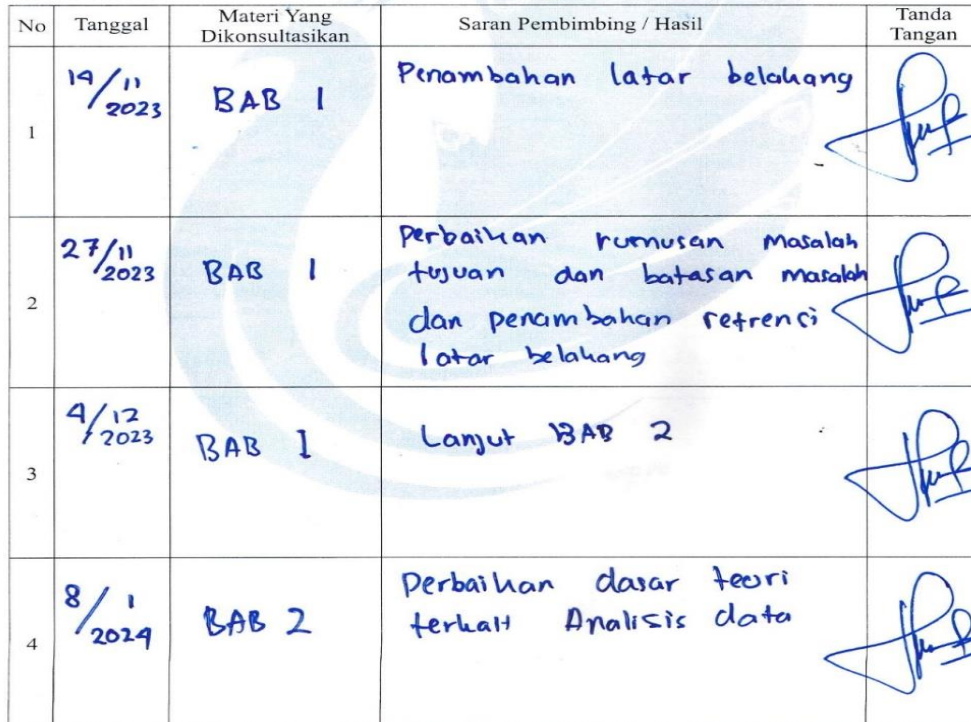 No Tanggal Materi Yang Dikonsultasikan Saran Pembimbing / Hasil Tanda Tangan
1 14/11 2023 BAB 1 Penambahan latar belakang
2 27/11 2023 BAB 1 Perbaikan rumusan masalah
tujuan dan batasan masalah
dan penambahan refrensi
latar belakang
3 4/12 2023 BAB 1 Lanjut BAB 2
4 8/1 2024 BAB 2 Perbaikan dasar teori
terkait Analisis data